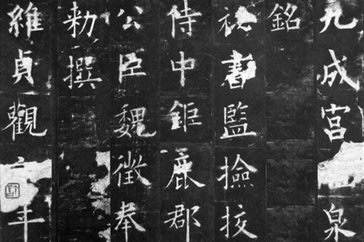 九成宮泉
銘
秘書監撿挍
侍中鉅鹿郡
公臣魏徵奉
勅撰
維貞觀年